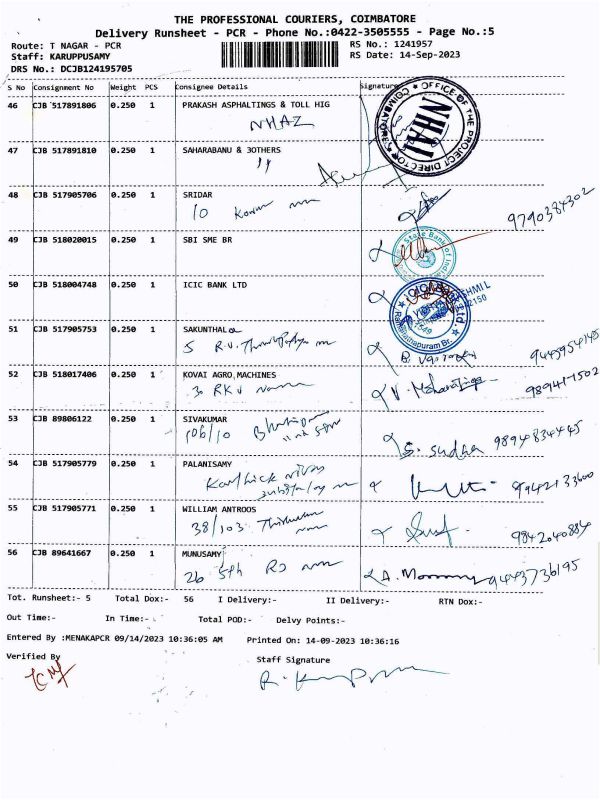 THE PROFESSIONAL COURIERS, COIMBATORE
Delivery Runsheet - PCR - Phone No.:0422-3505555 - Page No.:5
Route: T NAGAR - PCR RS No.: 1241957
Staff: KARUPPUSAMY RS Date: 14-Sep-2023
DRS No.: DCJB124195705
S No Consignment No Weight PCS Consignee Details Signature
46 CJB 517891806 0.250 1 PRAKASH ASPHALTINGS & TOLL HIG
NHAI
OFFICE OF THE PROJECT DIRECTOR COIMBATORE
47 CJB 517891810 0.250 1 SAHARABANU & 3OTHERS
48 CJB 517905706 0.250 1 SRIDAR
10
9790384302
49 CJB 518020015 0.250 1 SBI SME BR
State Bank of
50 CJB 518004748 0.250 1 ICIC BANK LTD
Ramanathapuram Br.
51 CJB 517905753 0.250 1 SAKUNTHALA
5 R.V.
52 CJB 518017406 0.250 1 KOVAI AGRO MACHINES
30 RKV
9894117502
53 CJB 89806122 0.250 1 SIVAKUMAR
106/10
S. sudha 9894834445
54 CJB 517905779 0.250 1 PALANISAMY
Karthick
9942133600
55 CJB 517905771 0.250 1 WILLIAM ANTROOS
38/103
9842040884
56 CJB 89641667 0.250 1 MUNUSAMY
26 5th
9443736195
Tot. Runsheet:- 5 Total Dox:- 56 I Delivery:- II Delivery:- RTN Dox:-
Out Time:- In Time:- Total POD:- Delvy Points:-
Entered By :MENAKAPCR 09/14/2023 10:36:05 AM Printed On: 14-09-2023 10:36:16
Verified By Staff Signature